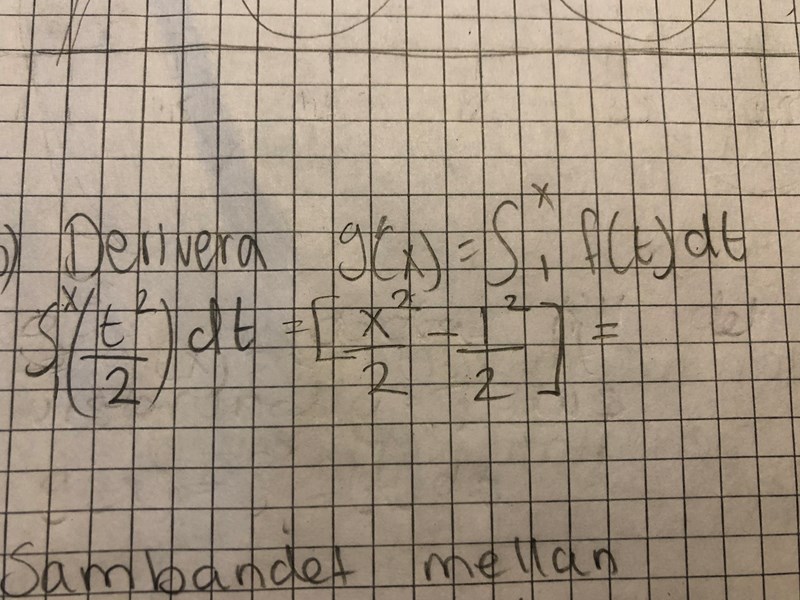 ) Derivera g(x) = ∫₁ˣ f(t) dt
∫ˣ (t²/2) dt = [x²/2 - 1²/2] =
Sambandet mellan